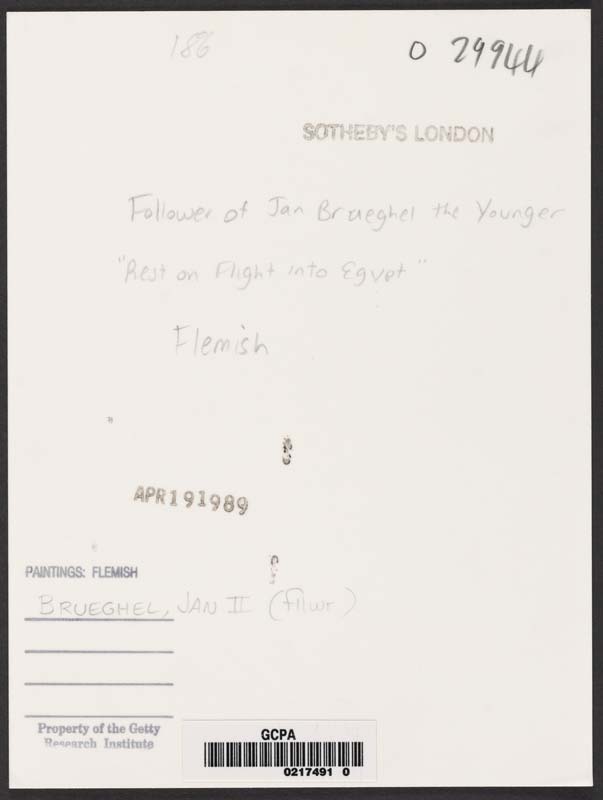 186
O 29944
SOTHEBY'S LONDON
Follower of Jan Brueghel the Younger
"Rest on Flight into Egypt"
Flemish
APR 19 1989
PAINTINGS: FLEMISH
BRUEGHEL, JAN II (fllwr)
Property of the Getty
Research Institute
GCPA
0217491 0